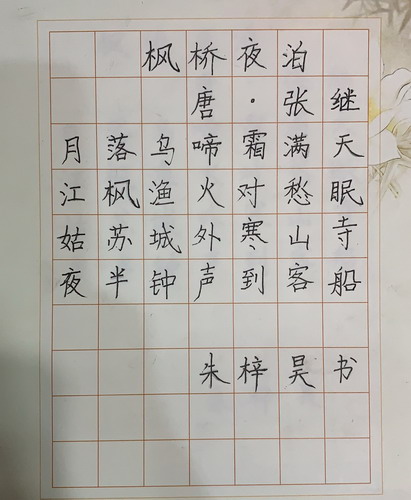 枫桥夜泊
唐·张继
月落乌啼霜满天
江枫渔火对愁眠
姑苏城外寒山寺
夜半钟声到客船
朱梓昊书